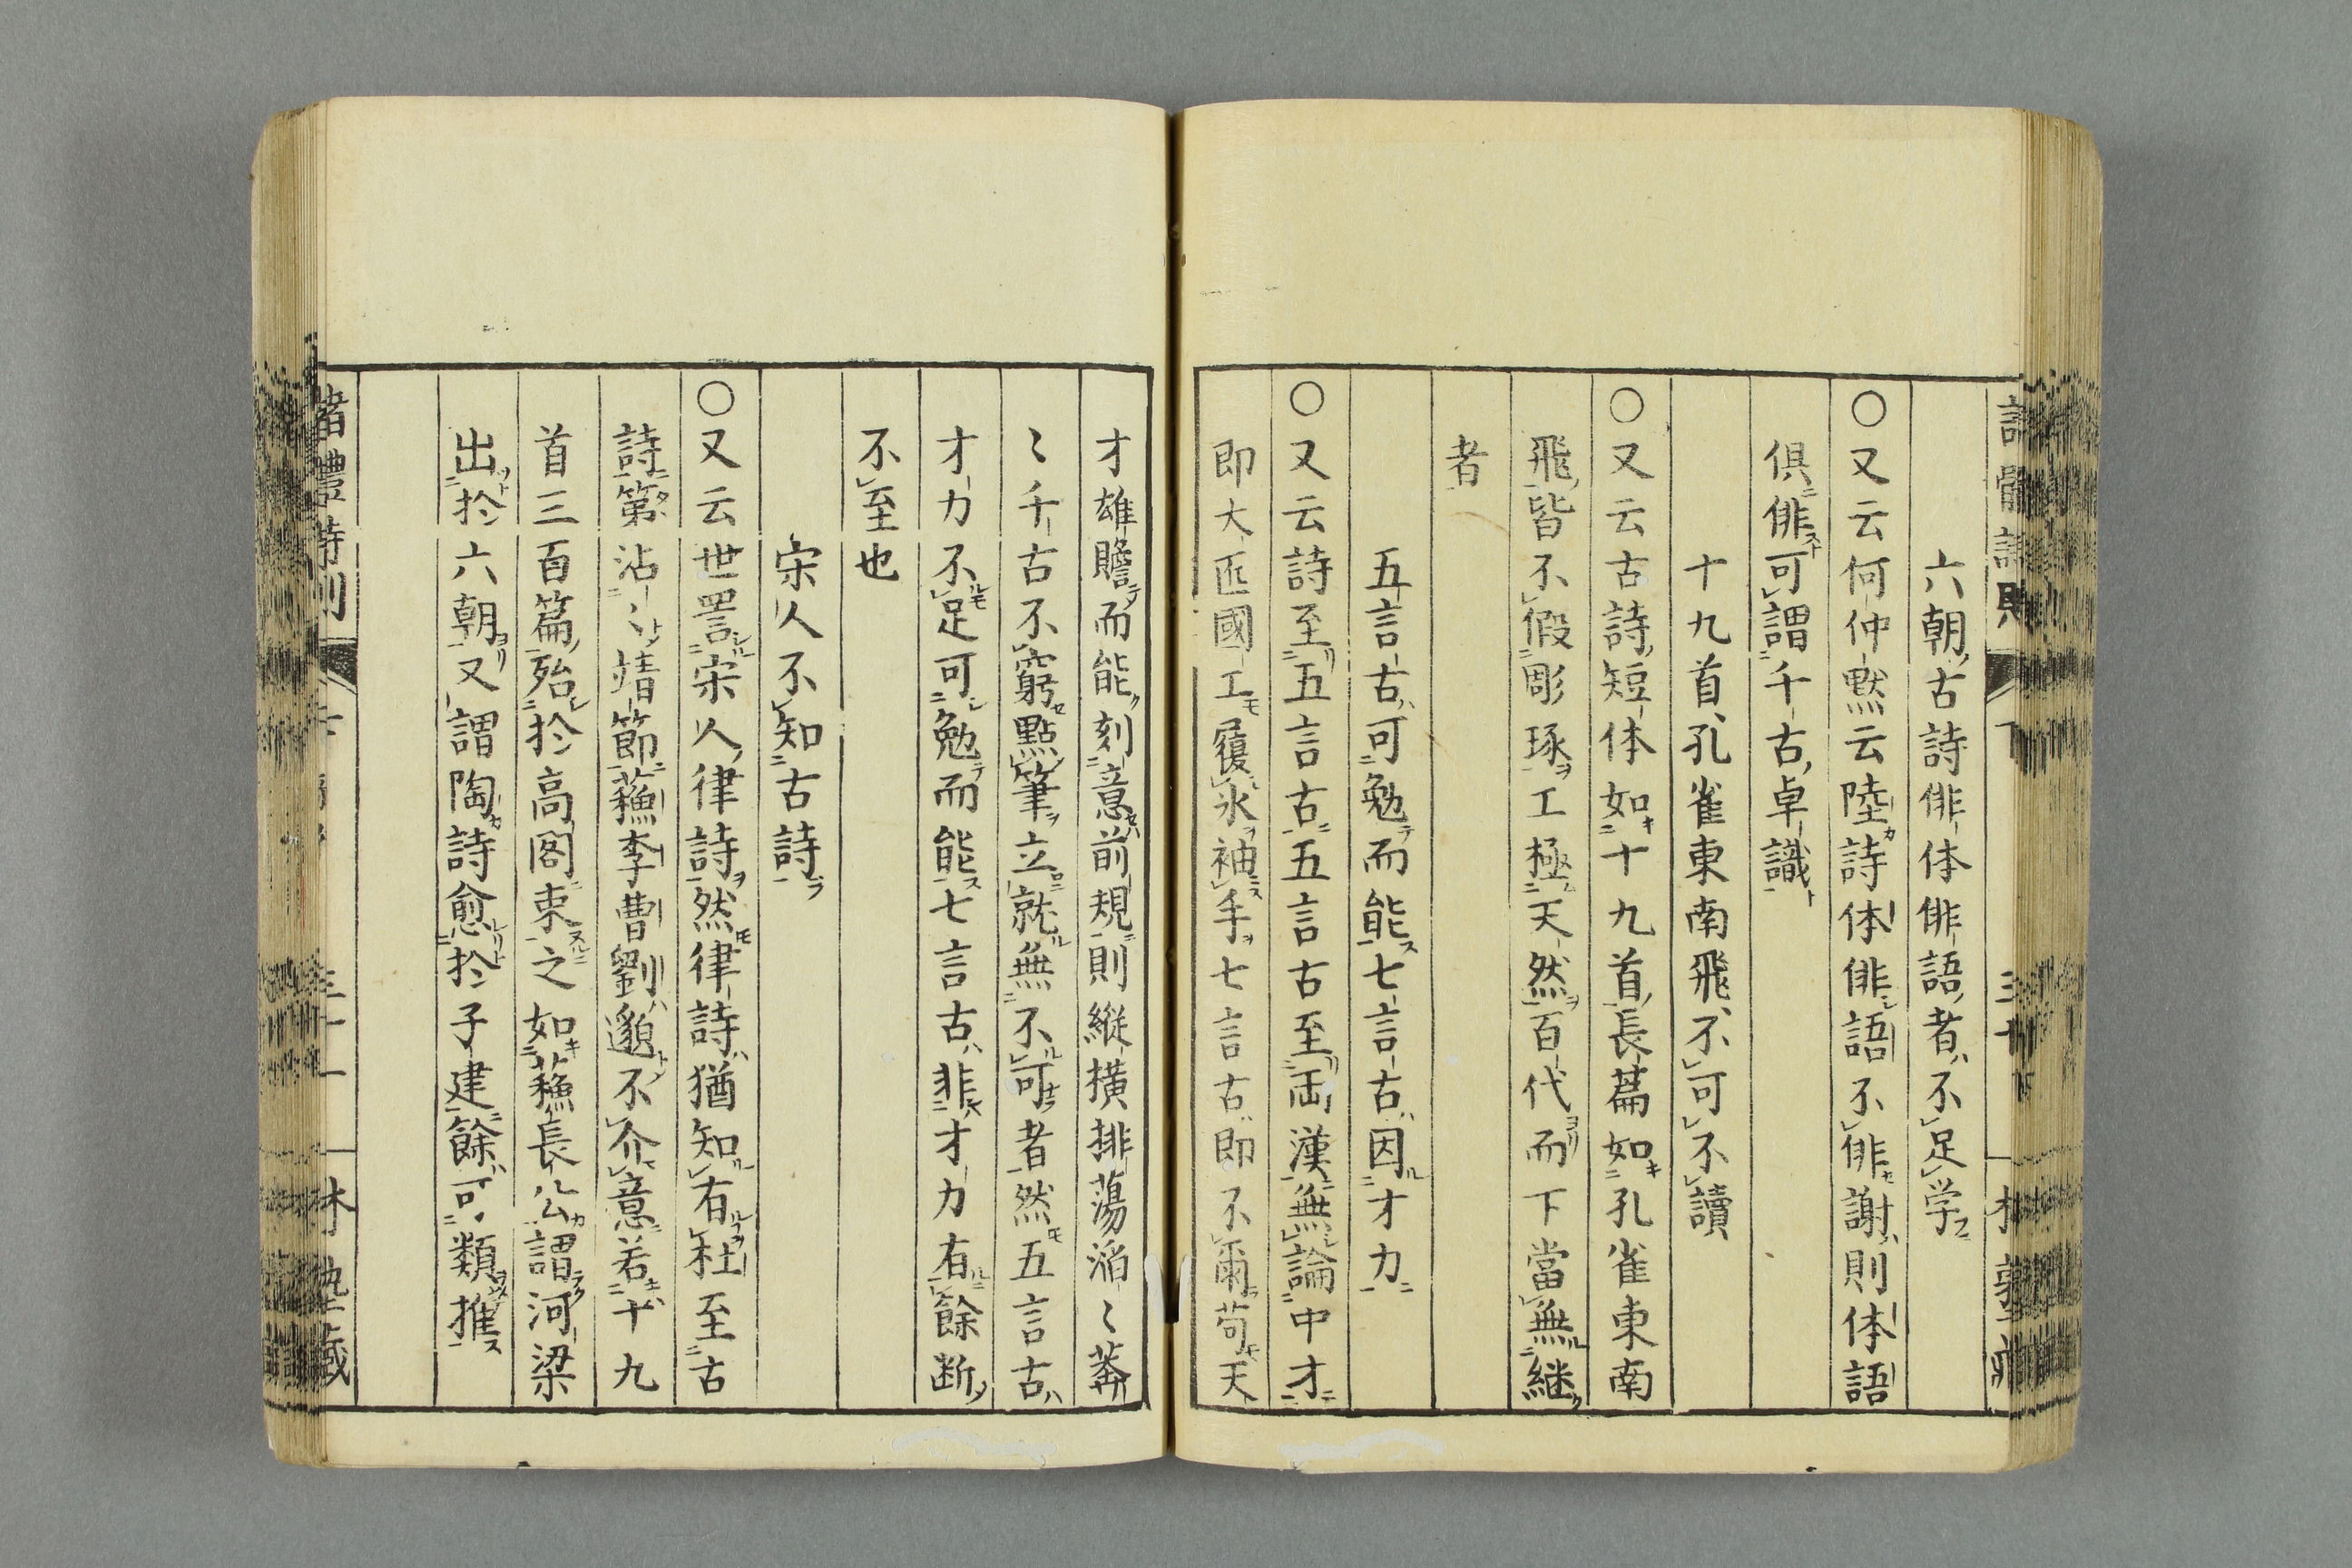 六朝古詩俳体俳語者不足学
〇又云何仲黙云陸詩体俳語不俳謝則体語
俱俳可謂千古卓識
十九首孔雀東南飛不可不讀
〇又云古詩短体如十九首長篇如孔雀東南
飛皆不假彫琢工極天然百代而下當無継
者
五言古可勉而能七言古因才力
〇又云詩至五言古五言古至両漢無論中才
即大匠國工履氷袖手七言古即不爾苟天
才雄贍而能刻意前規則縦横排蕩滔〻莽
〻千古不窮點筆立就無不可者然五言古
才力不足可勉而能七言古非才力有餘断
不至也
宋人不知古詩
〇又云世詈宋人律詩然律詩猶知有杜至古
詩第沾〻靖節蘓李曹劉邈不介意若十九
首三百篇殆於高閣束之如蘓長公謂河梁
出於六朝又謂陶詩愈於子建餘可類推
諸體詩則
三十一
林塾藏